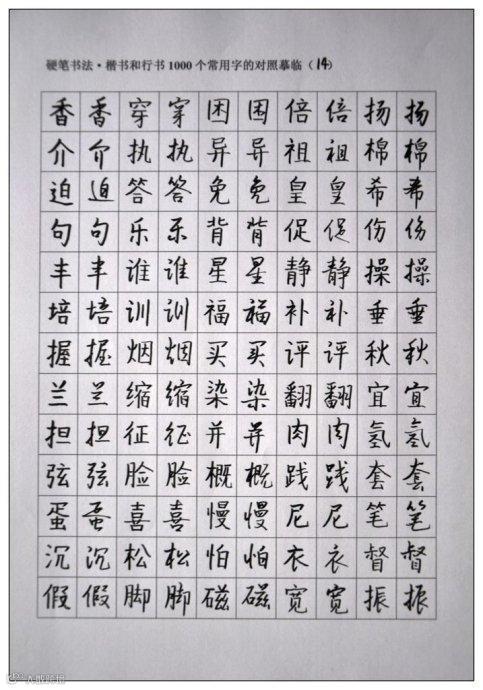 硬笔书法·楷书和行书1000个常用字的对照摹临（14）
香香穿穿困困倍倍扬扬
介介执执异异祖祖棉棉
迫迫答答免免皇皇希希
句句乐乐背背促促伤伤
丰丰谁谁星星静静操操
培培训训福福补补垂垂
握握烟烟买买评评秋秋
兰兰缩缩染染翻翻宜宜
担担征征并并肉肉氢氢
弦弦脸脸概概践践套套
蛋蛋喜喜慢慢尼尼笔笔
沉沉松松怕怕衣衣督督
假假脚脚磁磁宽宽振振